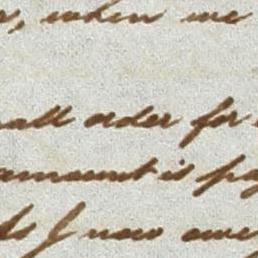 , when we
small order for
amount is pay
I now owe